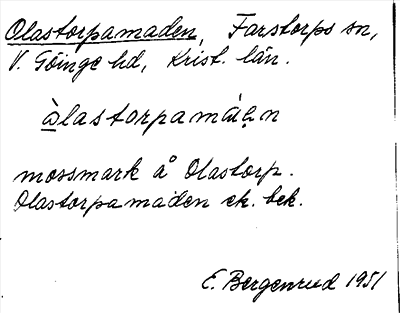 Olastorpamaden, Farstorps sn,
V. Göinge hd, Krist. län.
àlastorpamáən
mossmark å Olastorp.
Olastorpamaden ek. bek.
E. Bergenrud 1951